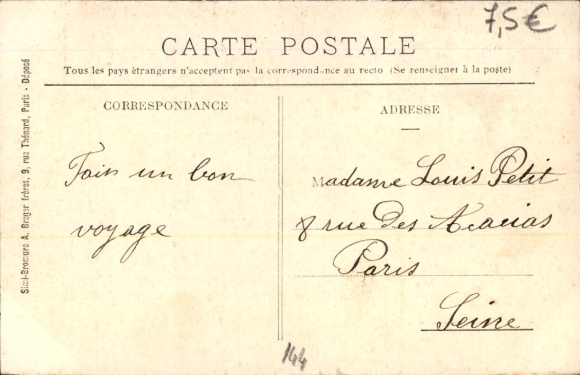 7,5€
CARTE POSTALE
Tous les pays étrangers n'acceptent pas la correspondance au recto (Se renseigner à la poste)
CORRESPONDANCE
Fais un bon
voyage
ADRESSE
Madame Louis Petit
8 rue des Acacias
Paris
Seine
144
Simi-Bromure A. Breger frères, 9, rue Thénard, Paris - Déposé